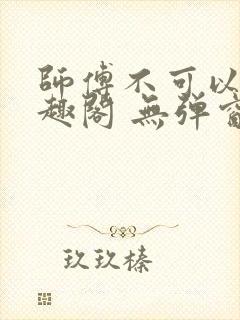 師傅不可以
趣閣 無彈窗
玖玖榛